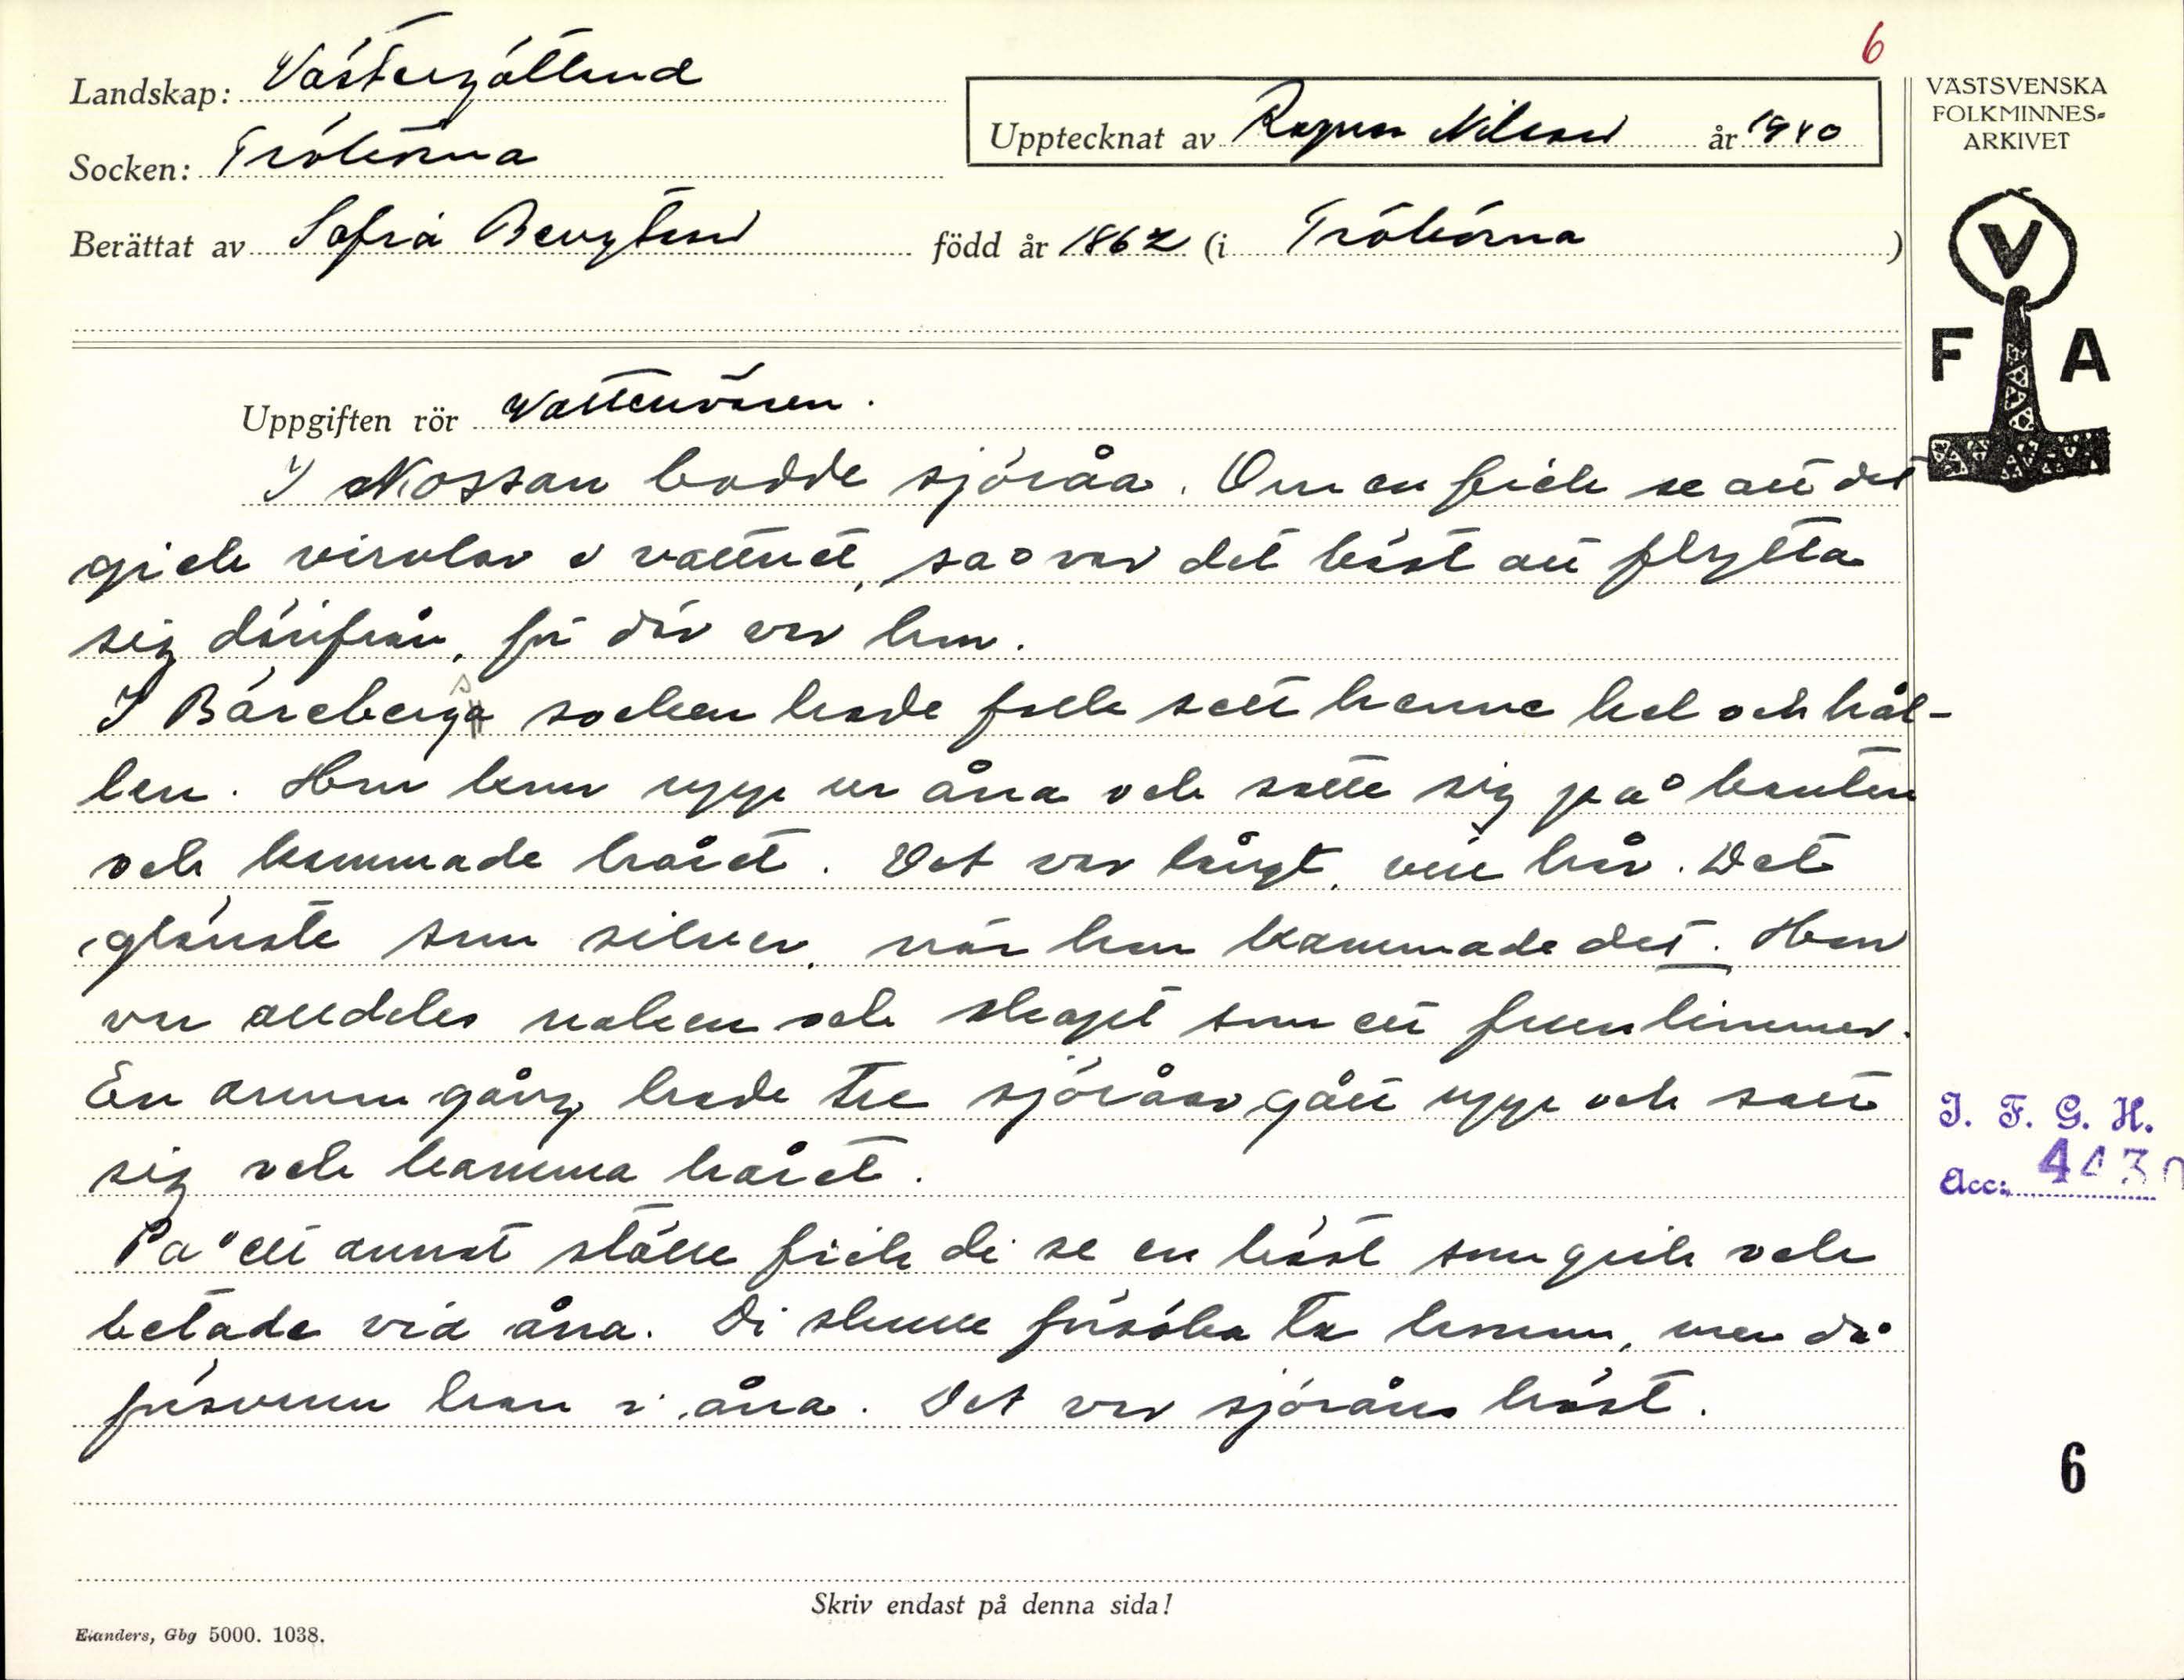 6
Landskap: Västergötland
Socken: Trökörna
Upptecknat av Ragnar Nilsson år 1940
Berättat av Sofia Bengtsson född år 1862 (i Trökörna)
VÄSTSVENSKA
FOLKMINNES-
ARKIVET
V
F A
Uppgiften rör Vattenväsen.
I Nossan bodde sjöråa. Om en fick se att det
gick virvlar i vattnet, så var det bäst att flytta
sig därifrån, för där var hon.
I Bärebergs socken hade folk sett henne hel och hål-
len. Hon kom upp ur åna och satte sig på kanten
och kammade håret. Det var långt, vitt hår. Det
glänste som silver, när hon kammade det. Hon
var alldeles naken och skapt som ett fruntimmer.
En annan gång hade tre sjöråar gått upp och satt
sig och kamma håret.
På ett annat ställe fick di se en häst som gick och
betade vid åna. Di skulle försöka ta honom, men då
försvann han i åna. Det var sjöråns häst.
I. F. G. H.
Acc:
6
Skriv endast på denna sida!
Elanders, Gbg 5000. 1038.